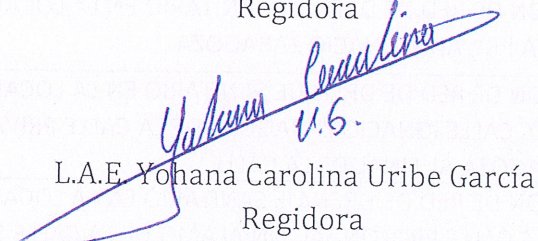 Regidora
Yohana Carolina
U.G.
L.A.E. Yohana Carolina Uribe García
Regidora